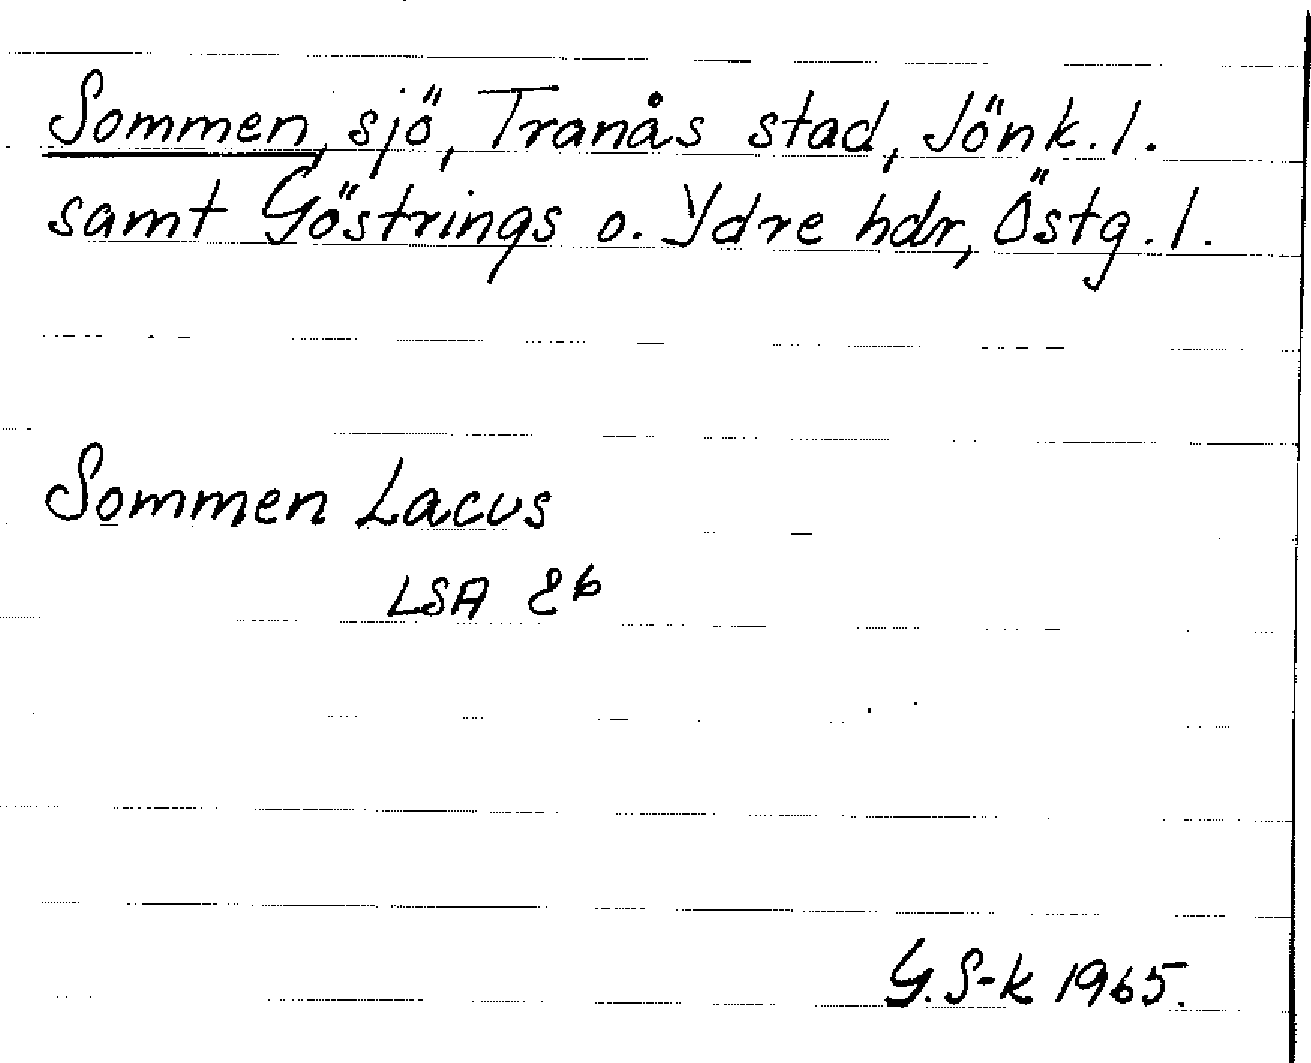 Sommen, sjö, Tranås stad, Jönk. l.
samt Göstrings o. Ydre hdr, Östg. l.
Sommen Lacus
LSA E6
G. S-k 1965.